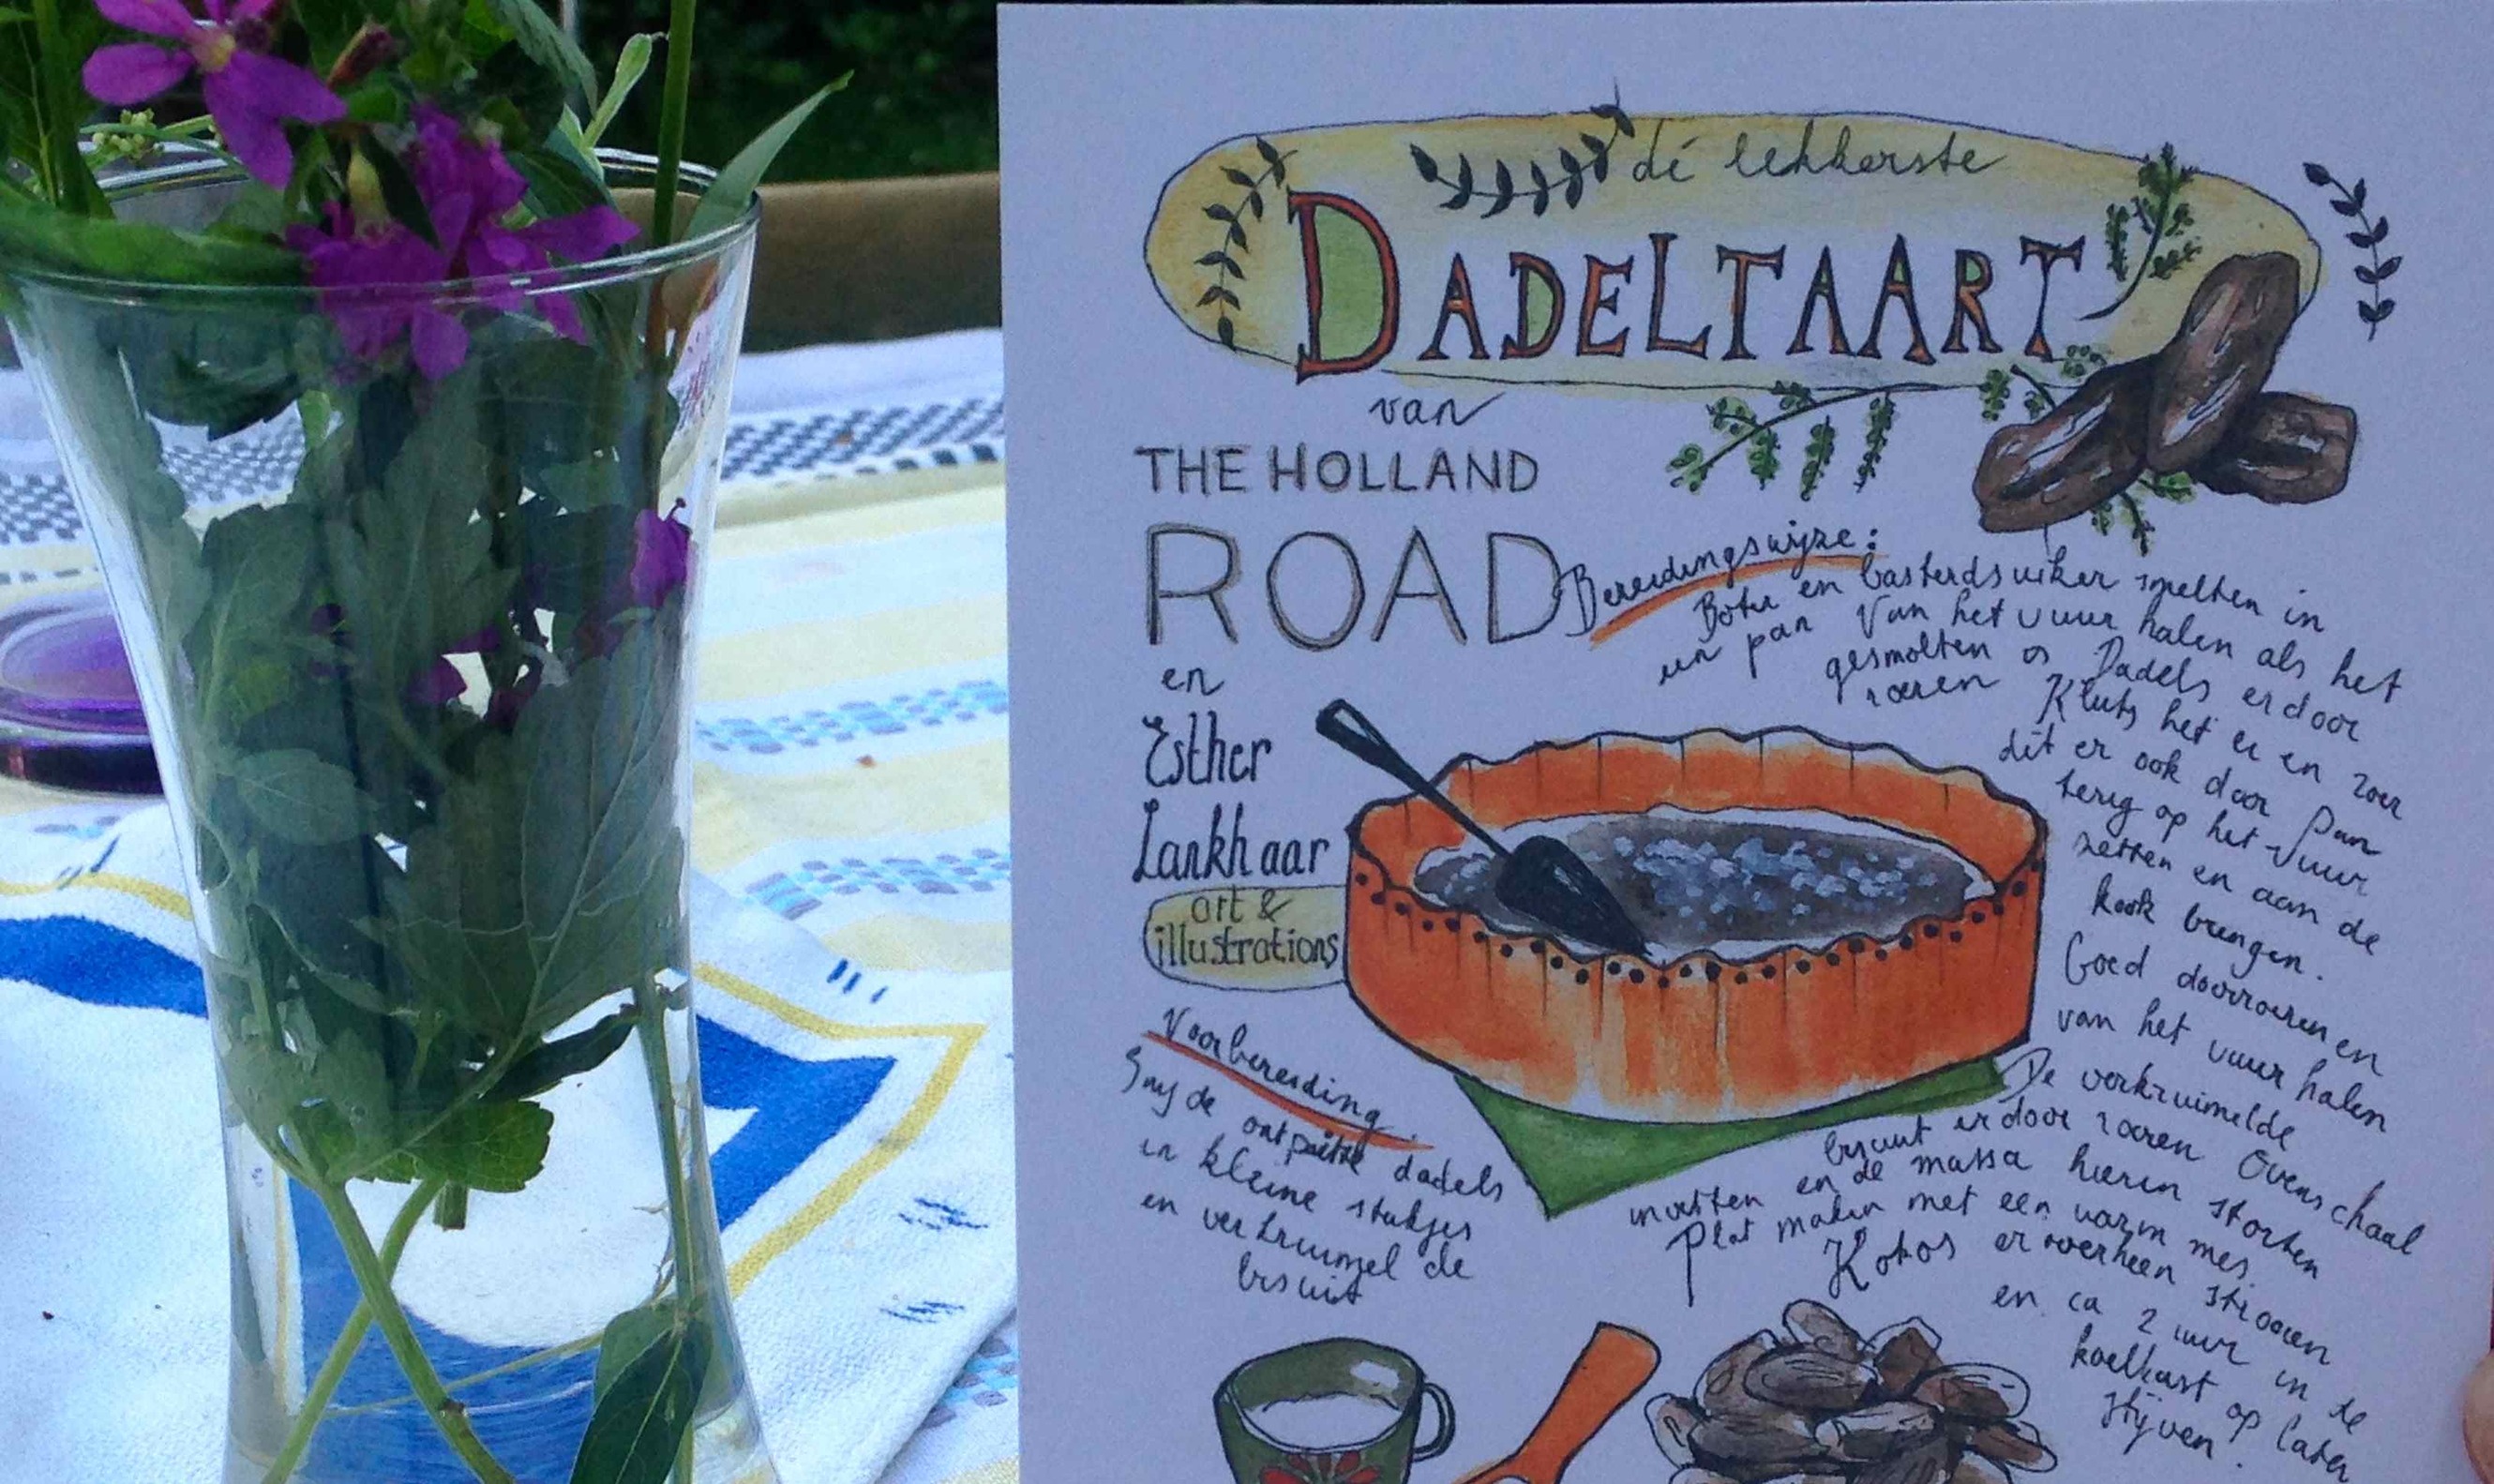 dé lekkerste
DADELTAART
van
THE HOLLAND
ROAD
en
Esther
Lankhaar
art &
illustrations
Voorbereiding.
Snij de ontpitte dadels
in kleine stukjes
en verkruimel de
biscuit
Bereidingswijze:
Boter en basterdsuiker smelten in
een pan Van het vuur halen als het
gesmolten is Dadels erdoor
roeren Kluts het ei en roer
dit er ook door Pan
terug op het vuur
zetten en aan de
kook brengen.
Goed doorroeren en
van het vuur halen
De verkruimelde
biscuit erdoor roeren Ovenschaal
invetten en de massa hierin storten
Plat maken met een warm mes.
Kokos er overheen strooien
en ca 2 uur in de
koelkast op laten
stijven.